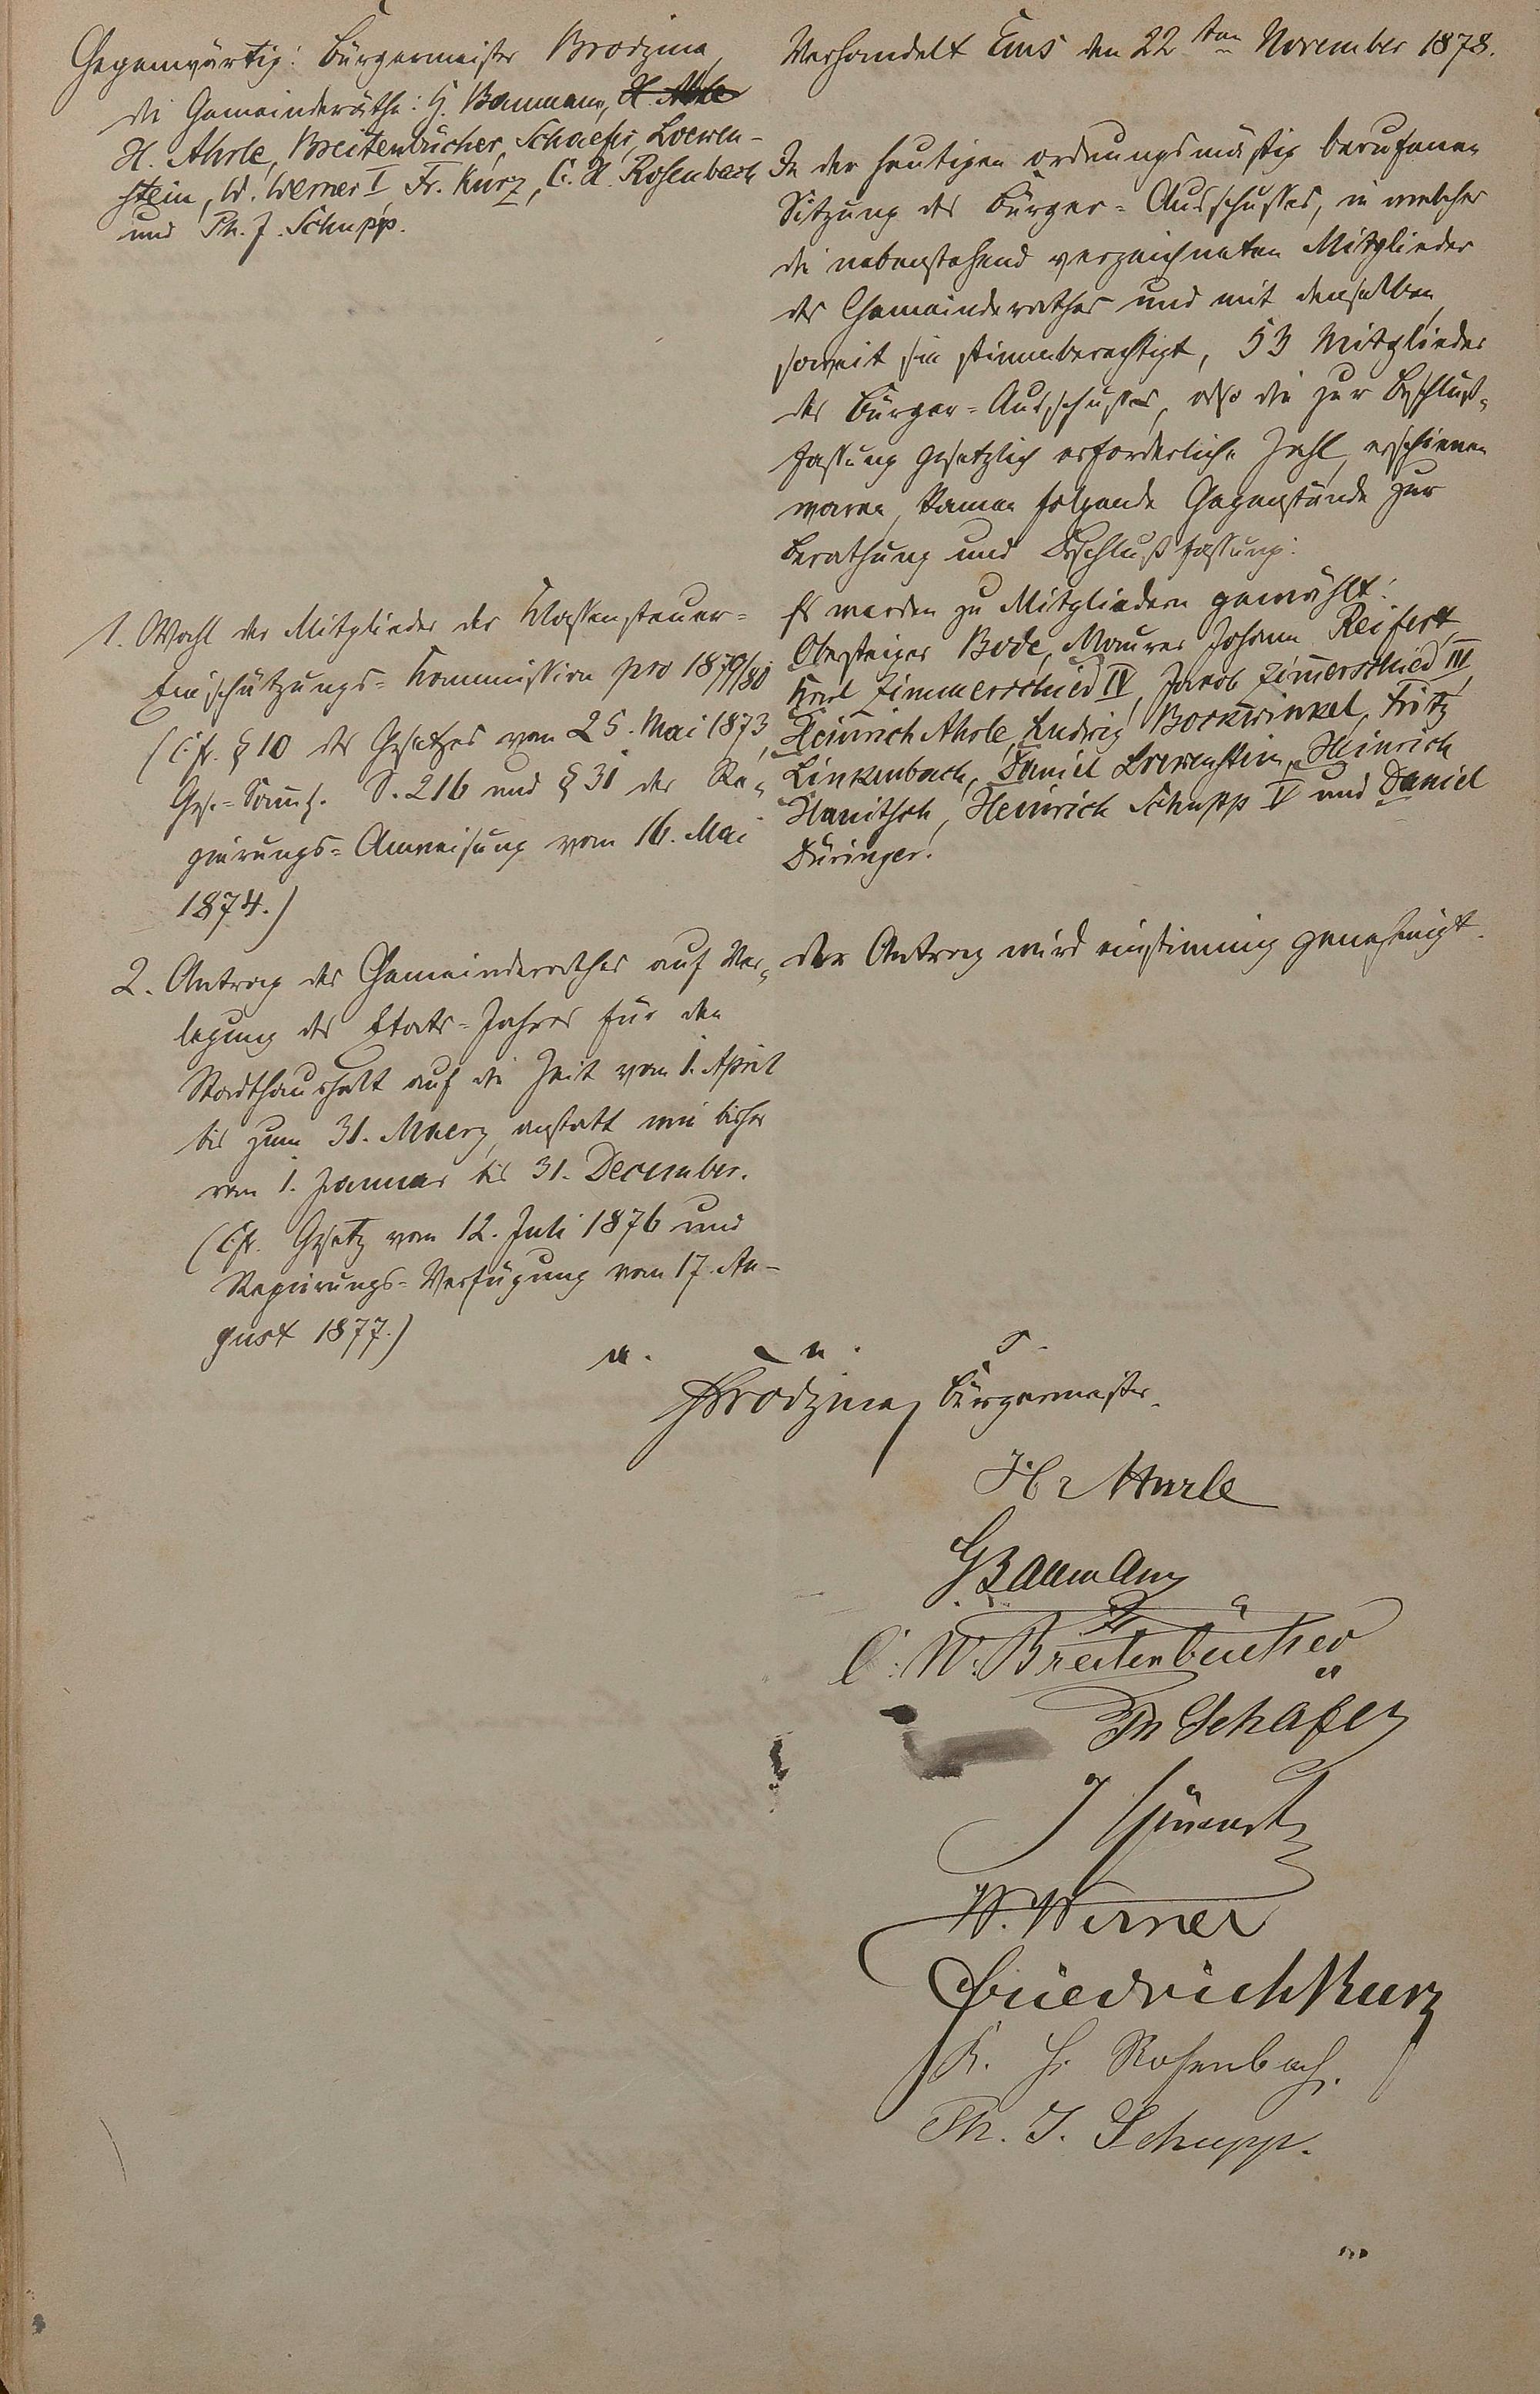 Gegenwärtig: Bürgermeister Brodzina,
die Gemeinderäthe: G. Baumann, H. Ahrle
H. Ahrle, Breitenbücher, Schaefer, Loewen-
stein, W. Werner I, Fr. Kurz, C. H. Rosenbach
und Ph. J. Schupp.
Verhandelt Ems den 22ten November 1878.
In der heutigen ordnungsmäßig berufenen
Sitzung des Bürger-Ausschusses, in welcher
die nebenstehend verzeichneten Mitglieder
des Gemeinderathes und mit denselben,
soweit sie stimmberechtigt, 53 Mitglieder
des Bürger-Ausschusses, also die zur Beschluß-
fassung gesetzlich erforderliche Zahl, erschienen
waren, kamen folgende Gegenstände zur
Berathung und Beschlußfassung:
1. Wahl der Mitglieder der Klassensteuer-
Einschätzungs-Kommission pro 1879/80
(Cfr. § 10 des Gesetzes vom 25. Mai 1873,
Ges.-Samml. S. 216 und § 31 der Re-
gierungs-Anweisung vom 16. Mai
1874.)
Es werden zu Mitgliedern gewählt:
Obersteiger Bode, Maurer Johann Reifert,
Karl Zimmerschied IV, Jacob Zimerschied III,
Heinrich Ahrle, Ludwig Bockwinkel, Fritz
Linkenbach, Daniel Loewenstein, Heinrich
Hanitsch, Heinrich Schupp V und Daniel
Düringer.
2. Antrag des Gemeinderathes auf Ver-
legung des Etats-Jahres für den
Stadthaushalt auf die Zeit vom 1. April
bis zum 31. Maerz, anstatt wie bisher
vom 1. Januar bis 31. December.
(Cfr. Gesetz vom 12. Juli 1876 und
Regierungs-Verfügung vom 17. Au-
gust 1877.)
Der Antrag wird einstimmig genehmigt.
Brodzina, Bürgermeister.
Hr Ahrle
G Baumann
C. W. Breitenbücher
Ph Schäfer
W. Werner
Friedrich Kurz
K. H. Rosenbach.
Ph. J. Schupp.